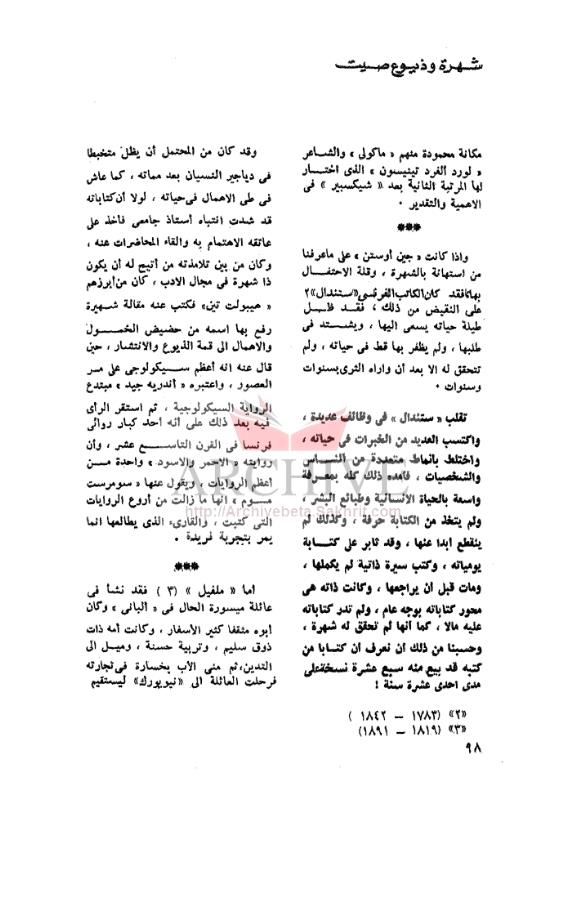 شهرة وذيوع صيت
مكانة محمودة منهم « ماكولى » والشاعر
« لورد الفرد تينيسون » الذى اختار
لها المرتبة الثانية بعد « شيكسبير » فى
الاهمية والتقدير ٠
***
واذا كانت « جين أوستن » على ماعرفنا
من استهانة بالشهرة ، وقلة الاحتفال
بها؛فقد كان الكاتب الفرنسى «ستندال»٢
على النقيض من ذلك ، فقد ظل
طيلة حياته يسعى اليها ، ويشتد فى
طلبها ، ولم يظفر بها قط فى حياته ، ولم
تتحقق له الا بعد أن واراه الثرى بسنوات
وسنوات ٠
تقلب « ستندال » فى وظائف عديدة ،
واكتسب العديد من الخبرات فى حياته ،
واختلط بأنماط متعددة من الناس
والشخصيات ، فأمده ذلك كله بمعرفة
واسعة بالحياة الانسانية وطبائع البشر ،
ولم يتخذ من الكتابة حرفة ، وكذلك لم
ينقطع أبدا عنها ، وقد ثابر على كتابة
يومياته ، وكتب سيرة ذاتية لم يكملها ،
ومات قبل أن يراجعها ، وكانت ذاته هى
محور كتاباته بوجه عام ، ولم تدر كتاباته
عليه مالا ، كما أنها لم تحقق له شهرة ،
وحسبنا من ذلك أن نعرف أن كتابا من
كتبه قد بيع منه سبع عشرة نسخة على
مدى احدى عشرة سنة !
«٢» (١٧٨٣ – ١٨٤٢ )
«٣» (١٨١٩ – ١٨٩١)
٩٨
وقد كان من المحتمل أن يظل متخبطا
فى دياجير النسيان بعد مماته ، كما عاش
فى طى الاهمال فى حياته ، لولا أن كتاباته
قد شدت انتباه أستاذ جامعى فأخذ على
عاتقه الاهتمام به والقاء المحاضرات عنه ،
وكان من بين تلامذته من أتيح له أن يكون
ذا شهرة فى مجال الادب ، كان من أبرزهم
« هيبولت تين» فكتب عنه مقالة شهيرة
رفع بها اسمه من حضيض الخمول
والاهمال الى قمة الذيوع والانتشار ، حين
قال عنه انه أعظم سيكولوجى على مر
العصور ، واعتبره « أندريه جيد » مبتدع
الرواية السيكولوجية ، ثم استقر الرأى
فيه بعد ذلك على أنه أحد كبار روائى
فرنسا فى القرن التاسع عشر ، وأن
روايته « الاحمر والاسود » واحدة من
أعظم الروايات ، ويقول عنها « سومرست
موم » انها ما زالت من أروع الروايات
التى كتبت ، والقارىء الذى يطالعها انما
يمر بتجربة فريدة ٠
***
أما « ملفيل » (٣) فقد نشأ فى
عائلة ميسورة الحال فى « ألبانى » وكان
أبوه مثقفا كثير الأسفار ، وكانت أمه ذات
ذوق سليم ، وتربية حسنة ، وميل الى
التدين،ثم منى الأب بخسارة فى تجارته
فرحلت العائلة الى «نيويورك» ليستقيم
ARCHIVE
http://Archivebeta.Sakhrit.com